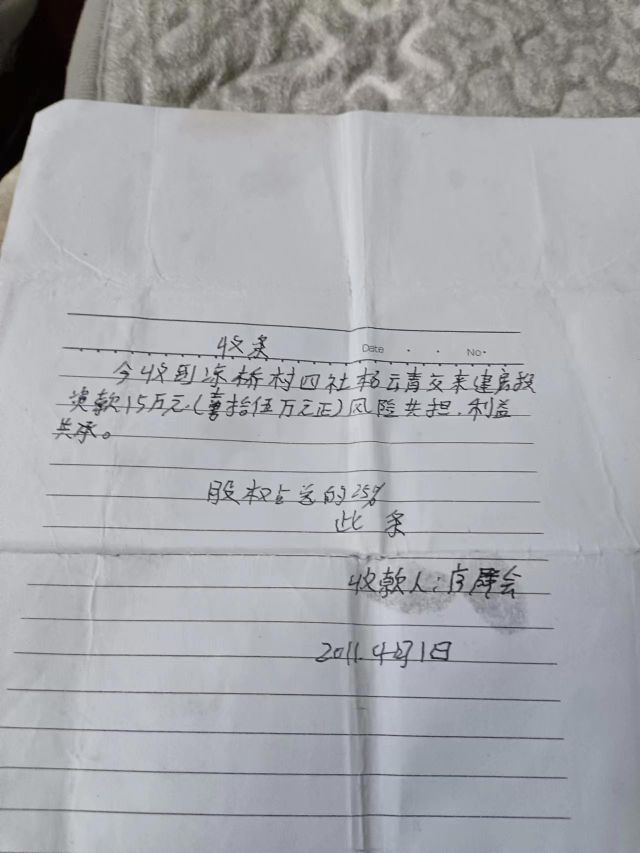 收条
Date . . No.
今收到凉桥村四社杨云青交来建房投
资款15万元.(壹拾伍万元正)风险共担.利益
共承。
股权占总的25%
此 条
收款人:
2011.4月1日